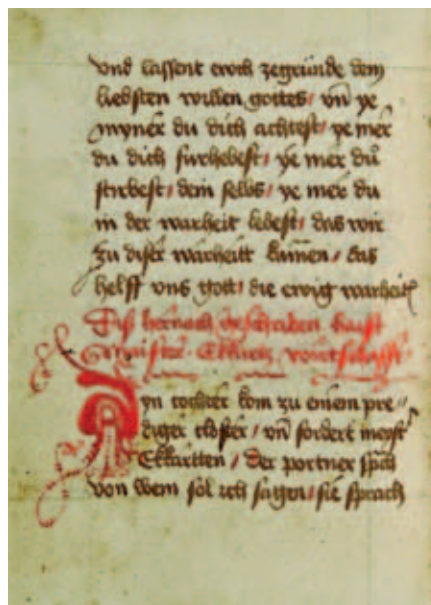 vnd lassent ewch zegrúnde dem
liebsten willen gottes / vñ ye
myner du dich achtest / ye mer
du dich furhebest / ye mer dů
stirbest / deim selbs / ye mer du
in der warheit lebest / das wir
zu diser warheitt kumen / das
helff vns gott / die ewig warheit
Diß hernach geschriben haist
maister Ekharts wirtschafft
Ayn tochter kom zu einem pre //
diger closter / vñ fordert mayst
Ekkartten / Der portner sp̄ch
von wem sol ich sagen / sie sprach